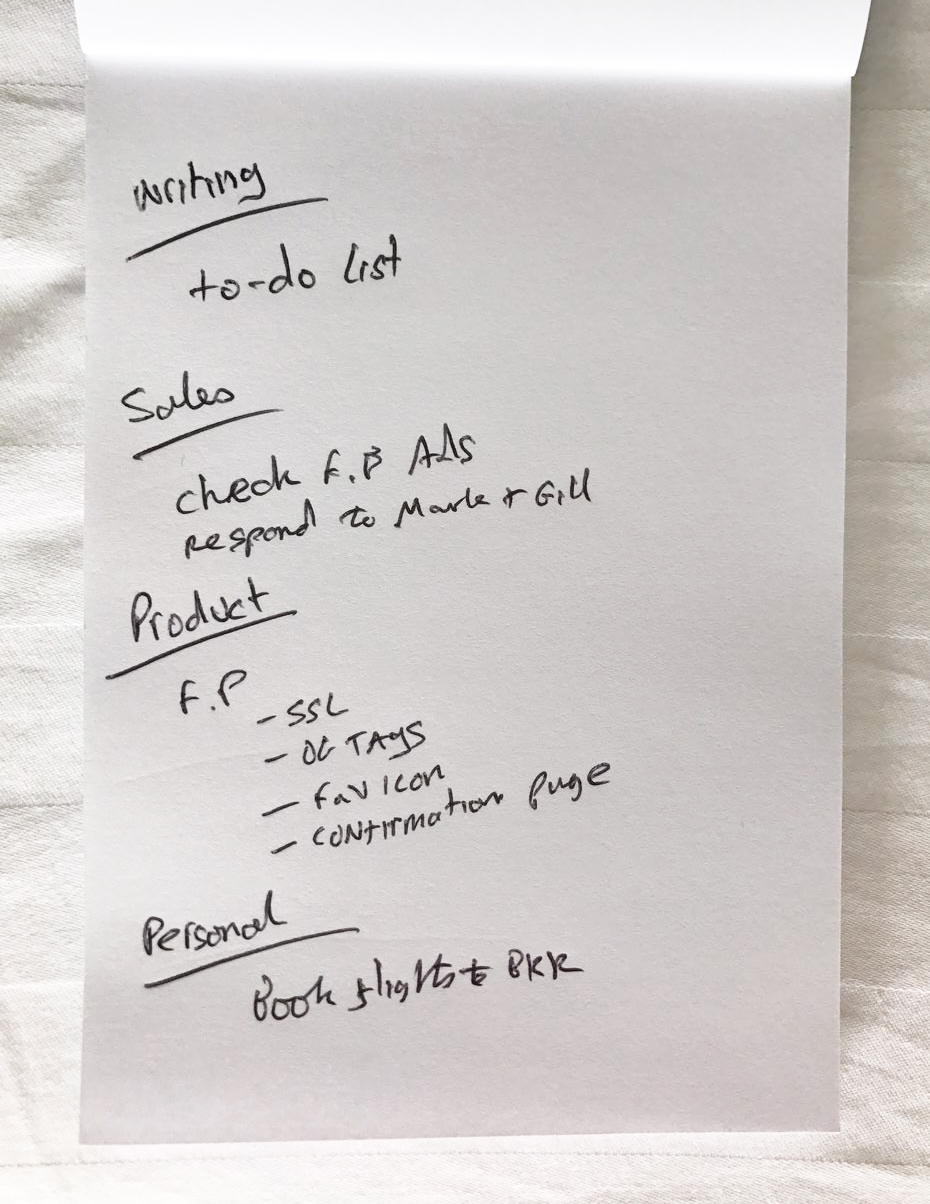 Writing
to-do list
Sales
check F.B Ads
respond to Mark + Gill
Product
F.P
- SSL
- OG TAgS
- Favicon
- Confirmation page
Personal
Book flights to BKK